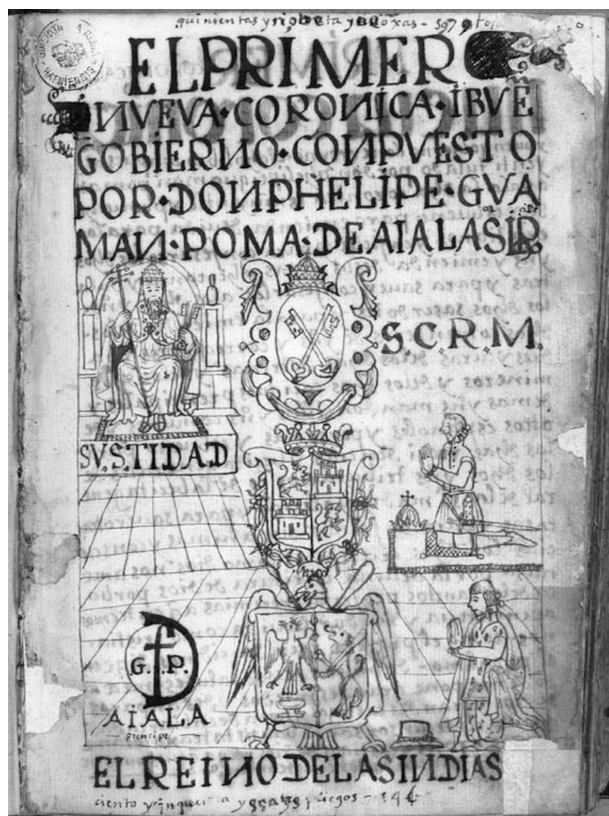 quinientas y oxas - 597
HAFNIENSIS
EL PRIMER
NVEVA·CORONICA·I BVĒ
GOBIERNO·CONPVESTO
POR·DON PHELIPE·GVA
MAN·POMA·DE AIALA
S.C.R.M.
SV.S.TIDAD
G. P.
AIALA
principe
EL REINO DE LAS INDIAS
ciento y pliegos - 146